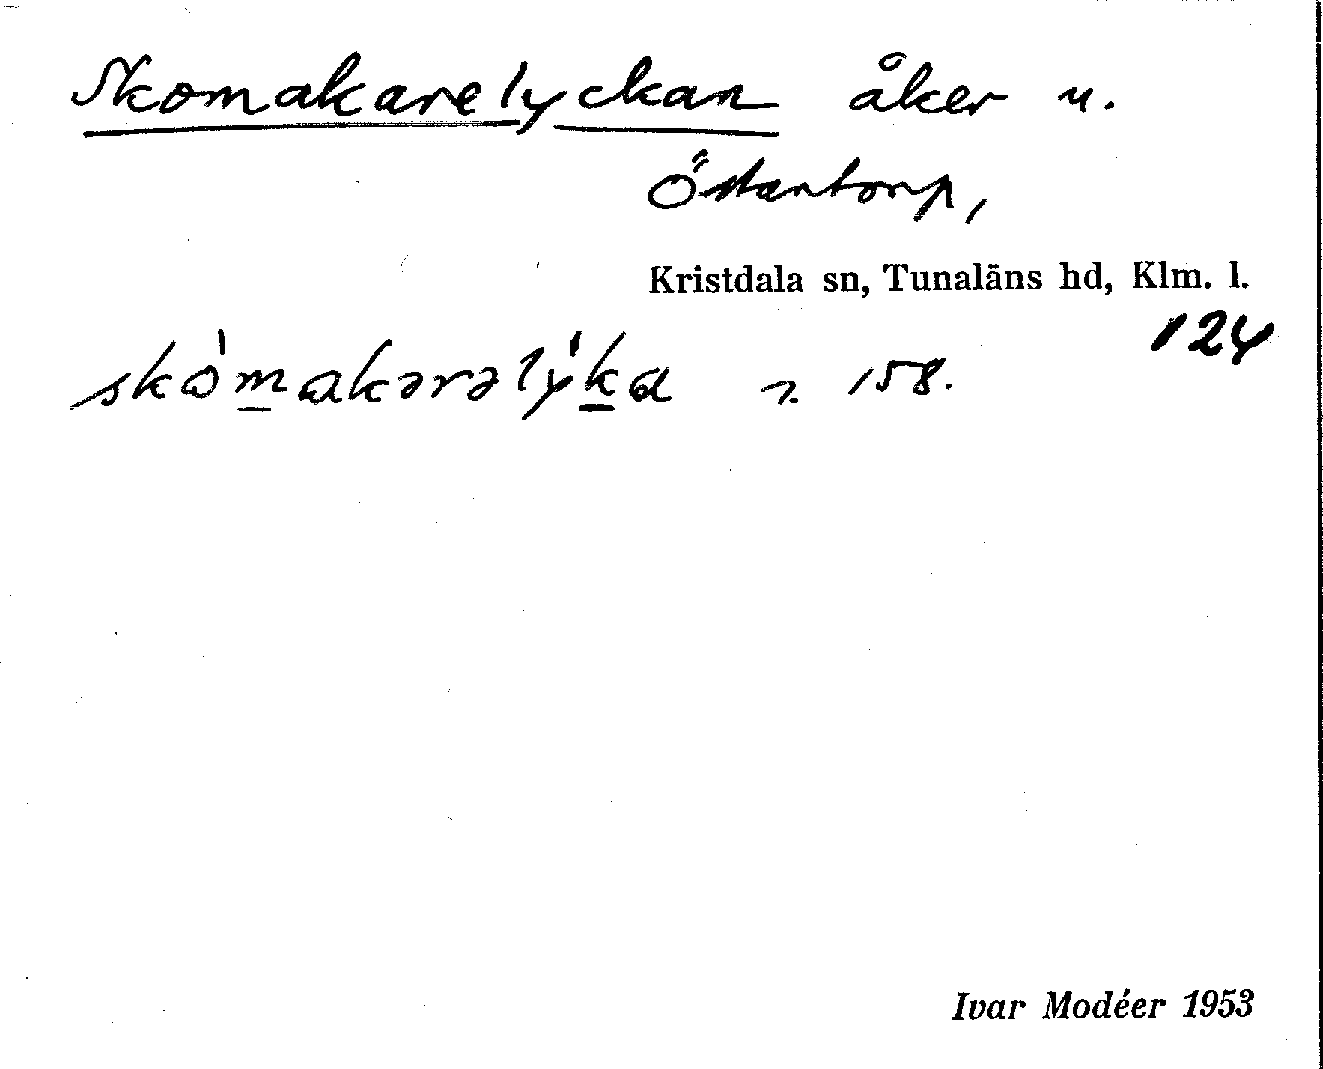 Skomakarelyckan åker u.
Östantorp,
Kristdala sn, Tunaläns hd, Klm. l.
124
skòmakərəlýka 158.
Ivar Modéer 1953